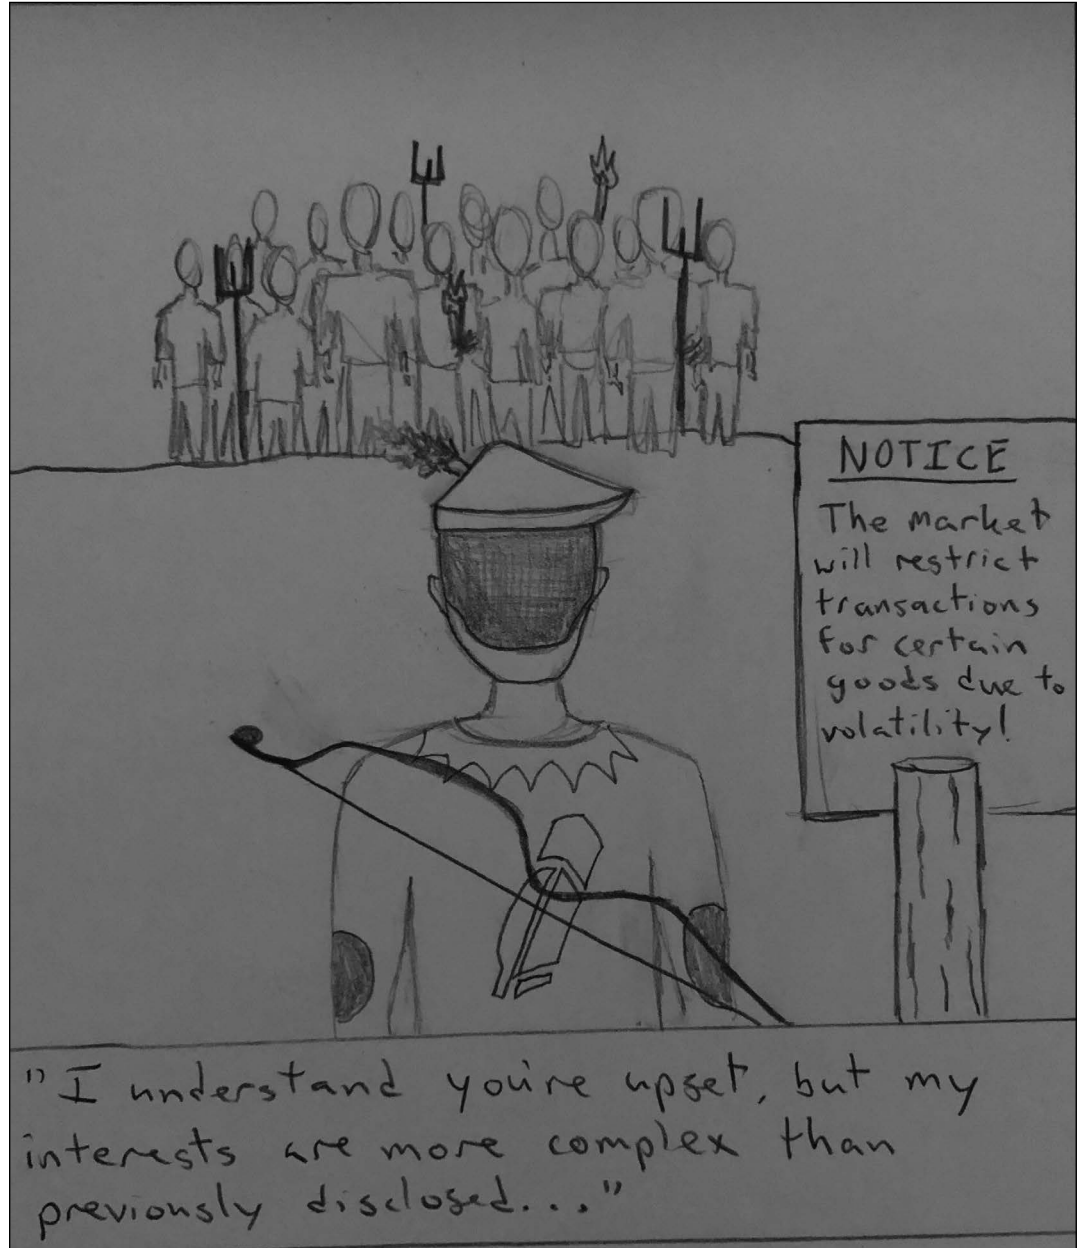 NOTICE
The market
will restrict
transactions
for certain
goods due to
volatility!
"I understand you're upset, but my
interests are more complex than
previously disclosed..."